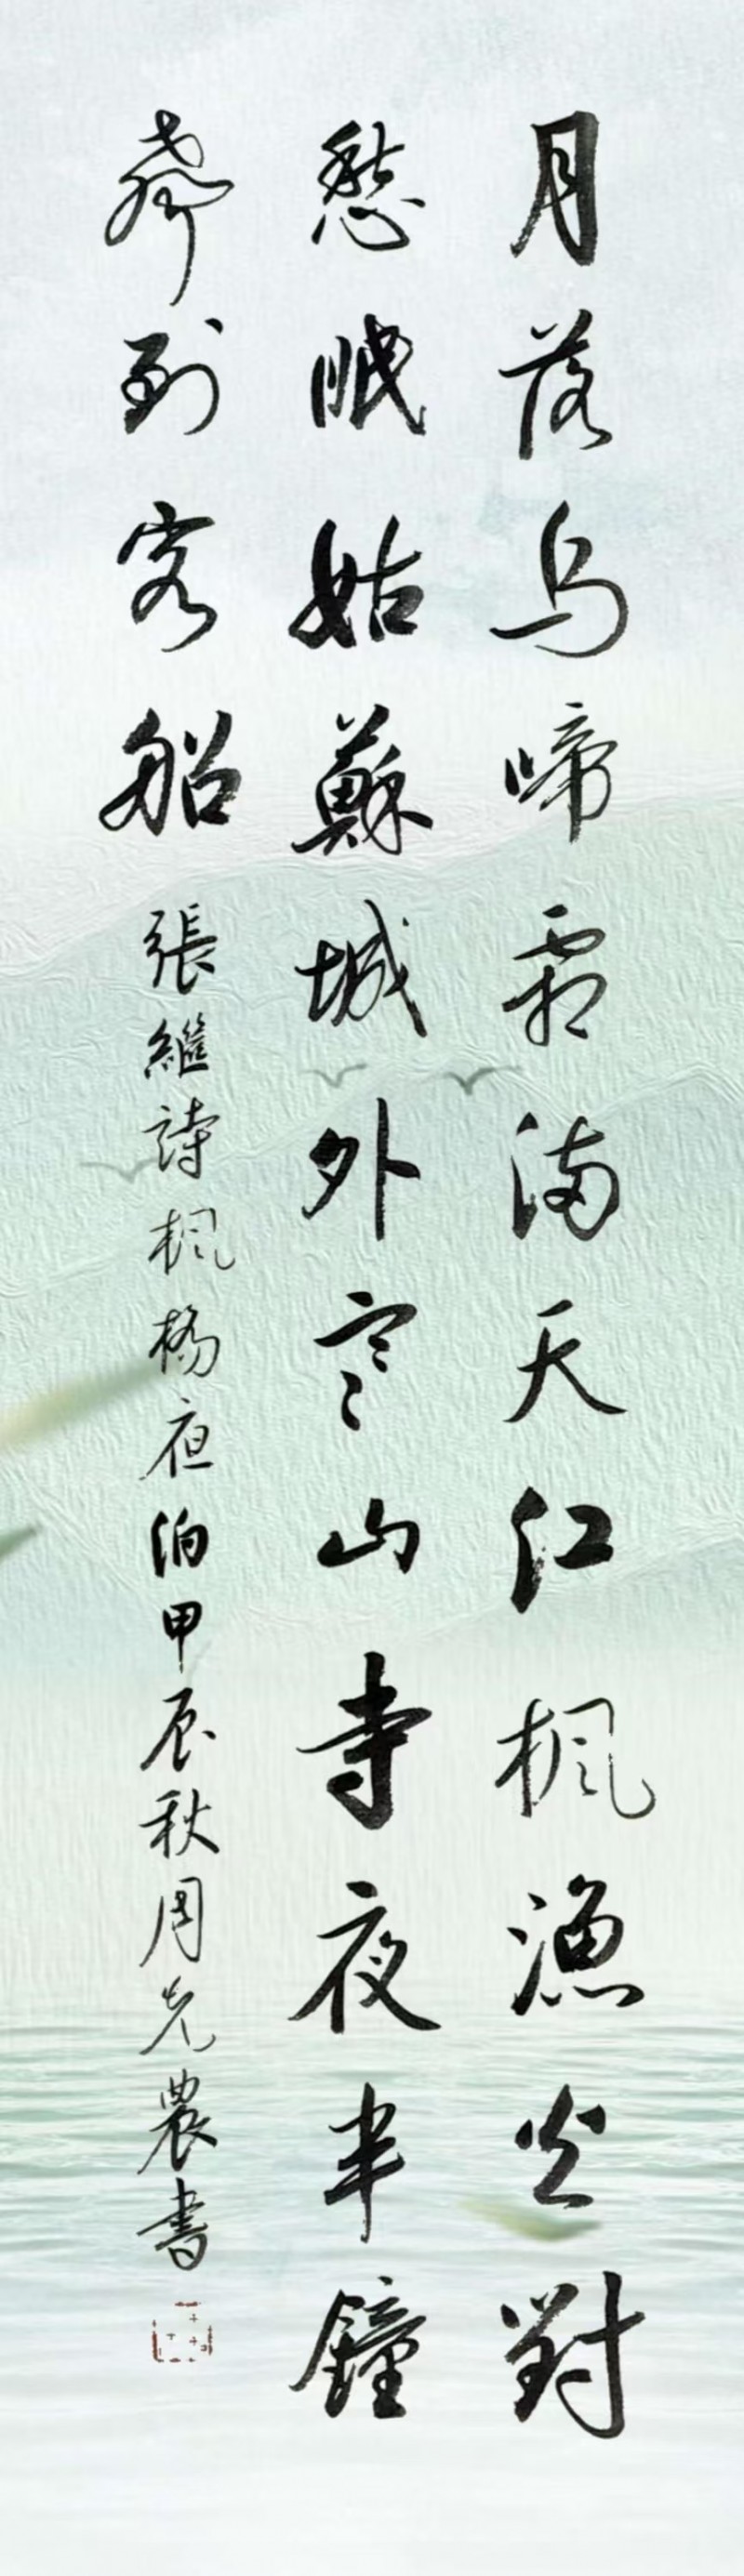 月落乌啼霜满天江枫漁火對
愁眠姑蘇城外寒山寺夜半鐘
聲到客船 張繼詩枫橋夜泊甲辰秋周光農書